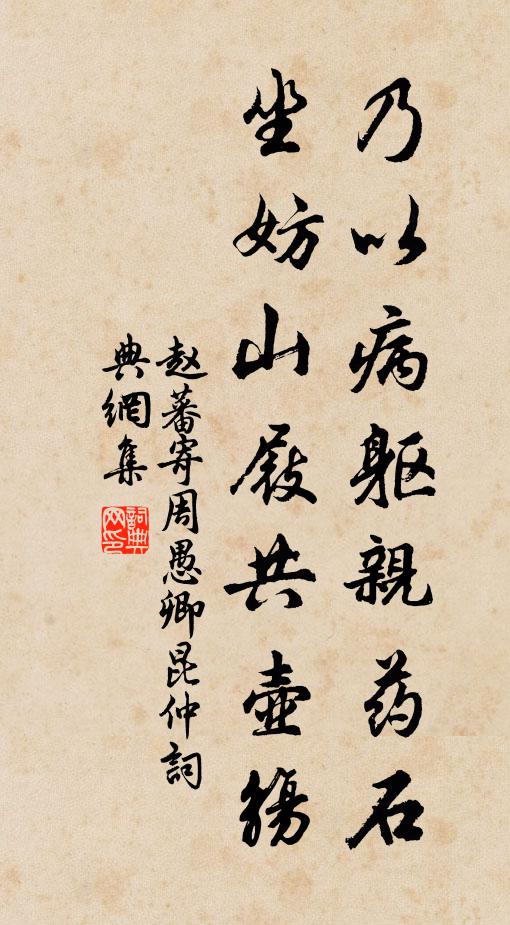 乃以病軀親药石
坐妨山屐共壺觴
赵蕃寄周愚卿昆仲詞
典網集
詞典
网印